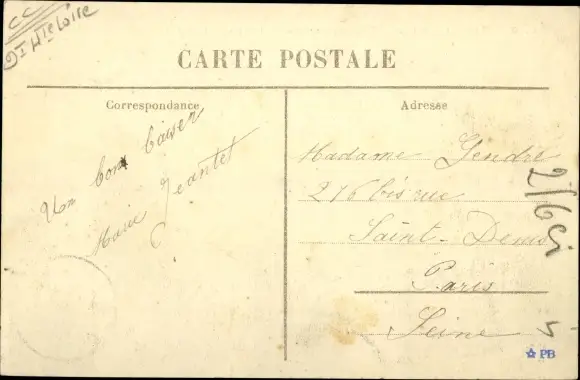 CC
Dt Hte Loire
CARTE POSTALE
Correspondance
Adresse
Un bon baiser
Marie Jeantet
Madame Gendre
276 bis rue
Saint-Denis
Paris
Seine
PB